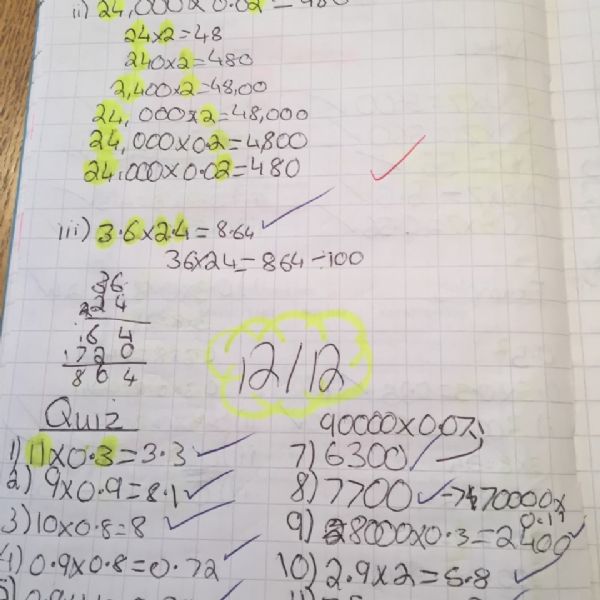 ii) 24,000x0.02=480
24x2=48
240x2=480
2,400x2=48,00
24,000x2=48,000
24,000x0.2=4800
24.000x0.02=480
iii) 3.6x2.4=8.64
36x24=864÷100
36
24
164
1720
864
12/12
Quiz
1) 11x0.3=3.3
2) 9x0.9=8.1
3) 10x0.8=8
4) 0.9x0.8=0.72
5)
90000x0.07
7) 6300
8) 7700 → 70000x
0.11
9) 8000x0.3=2400
10) 2.9x2=5.8